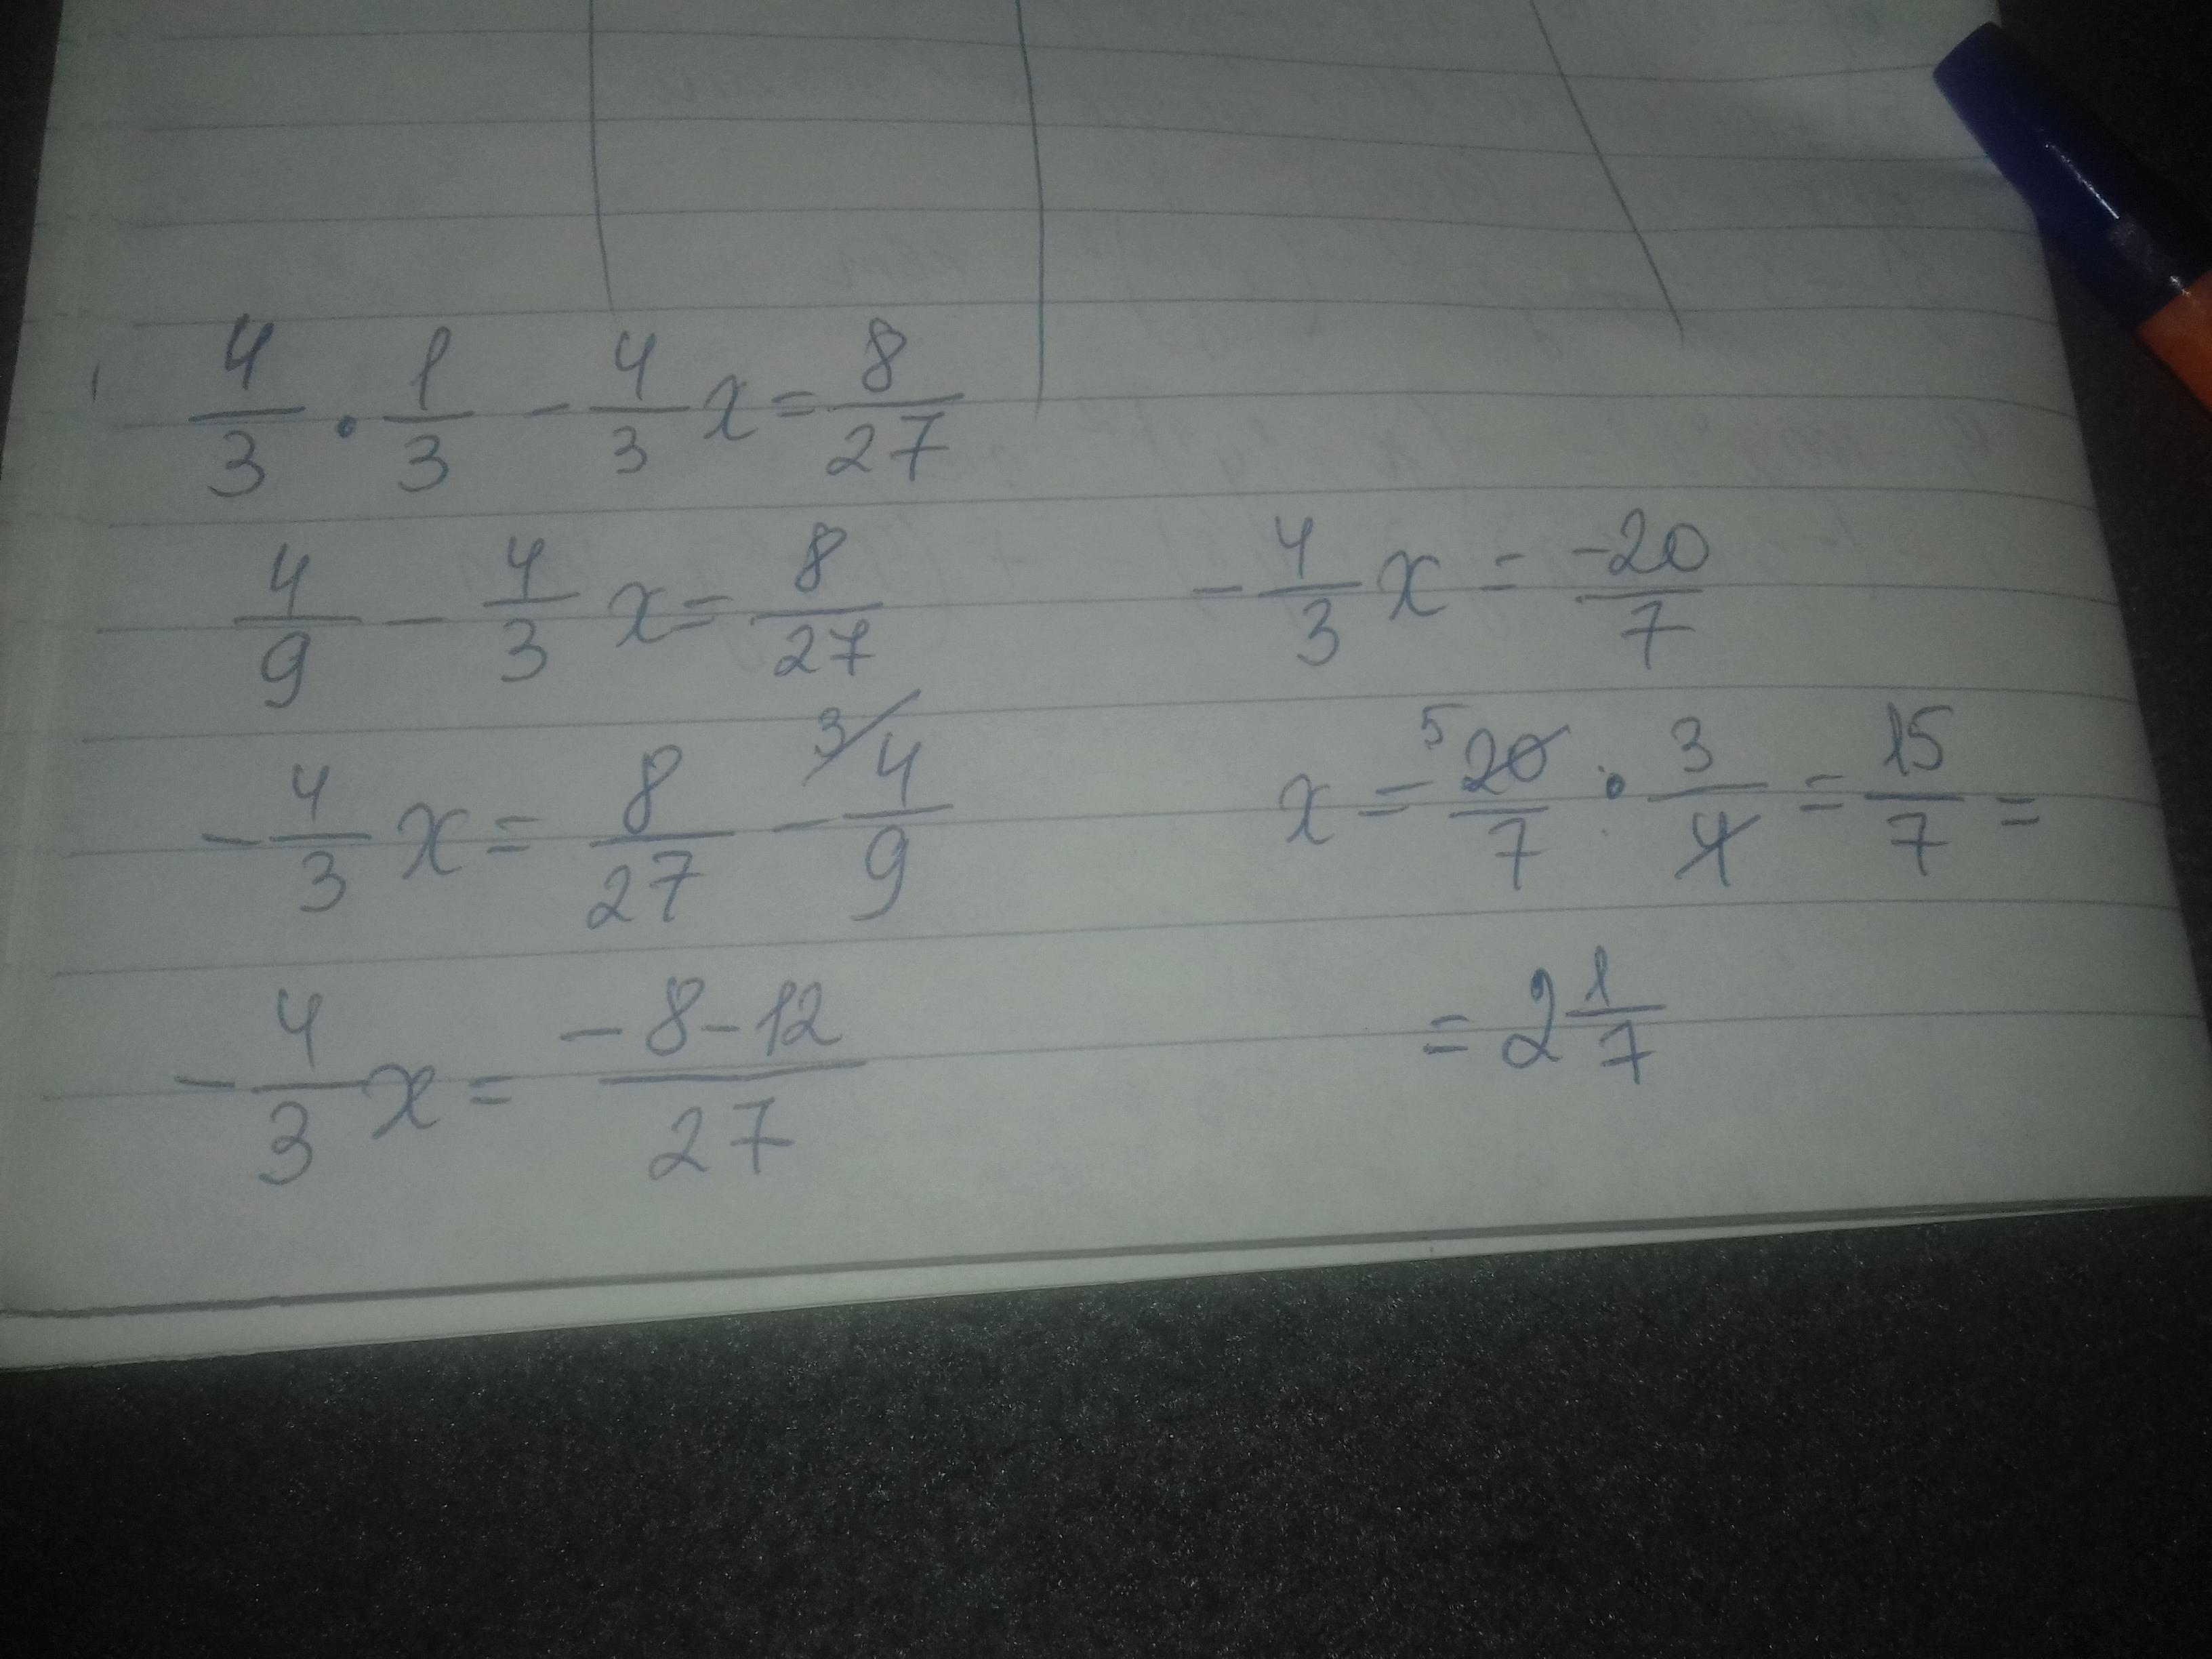 4/3 · 1/3 - 4/3 x = 8/27
4/9 - 4/3 x = 8/27
- 4/3 x = 8/27 - 3/ 4/9
- 4/3 x = (- 8 - 12)/27
- 4/3 x = -20/7
x = 5 20/7 · 3/4 = 15/7 =
= 2 1/7